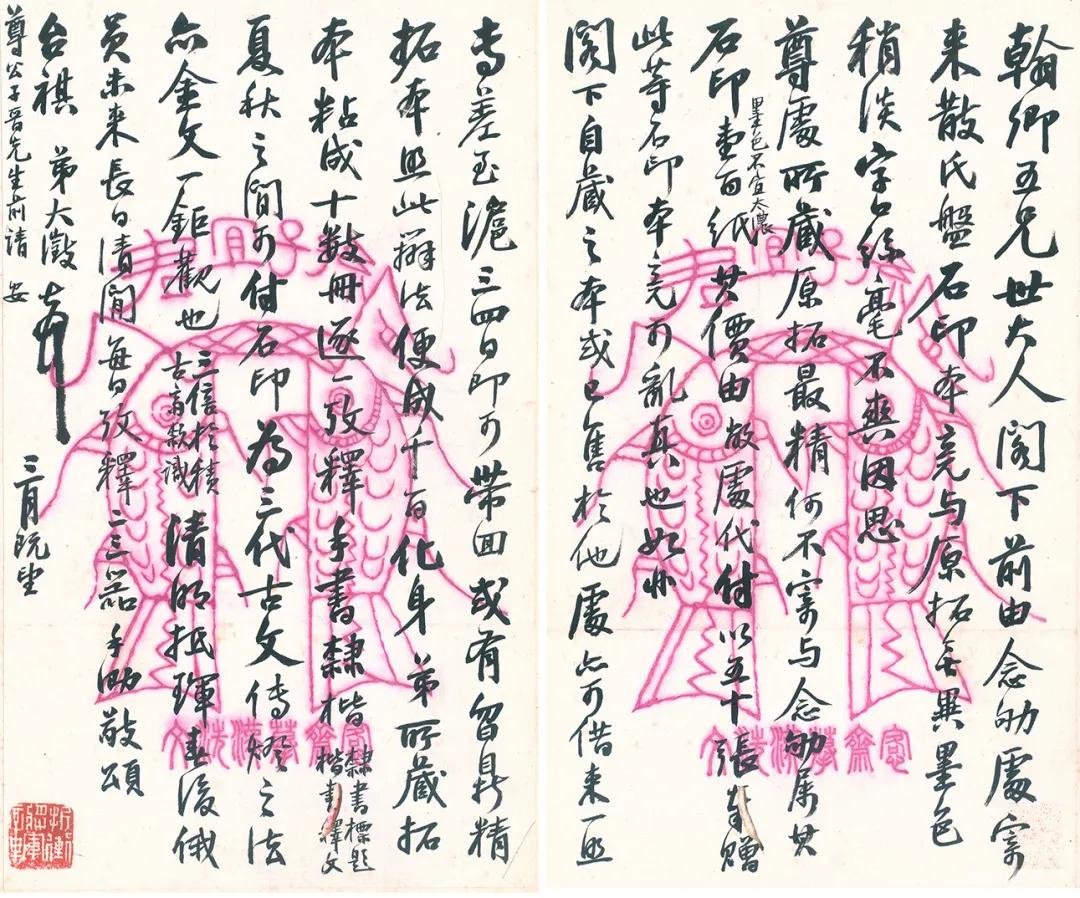 翰卿五兄世大人閣下前由念劬處寄
来散氏盤石印本竟与原拓無異墨色
稍淡字口絲毫不爽因思
尊處所藏原拓最精何不寄与念劬属其
石印壹百紙墨色不宜太濃其價由敝處代付以五十張奉贈
此等石印本竟可亂真也如非
閣下自藏之本或已售於他處亦可借来一照
君宜子孫
愙齋摹漢洗文
專差至滬三四日即可帶回或有留鼎精
拓本照此辦法便成千百化身弟所藏拓
本粘成十數冊逐一攷釋手書隸楷隸書標題楷書釋文
夏秋之間可付石印為三代古文傳燈之法
亦金文一鉅觀也三倍於積古齋款識清明抵琿春後俄
員未来長日清閒每日攷釋二三器手泐敬頌
台祺 弟大澂頓首 三月既望
尊公子晋先生前請安
君宜子孫
愙齋摹漢洗文